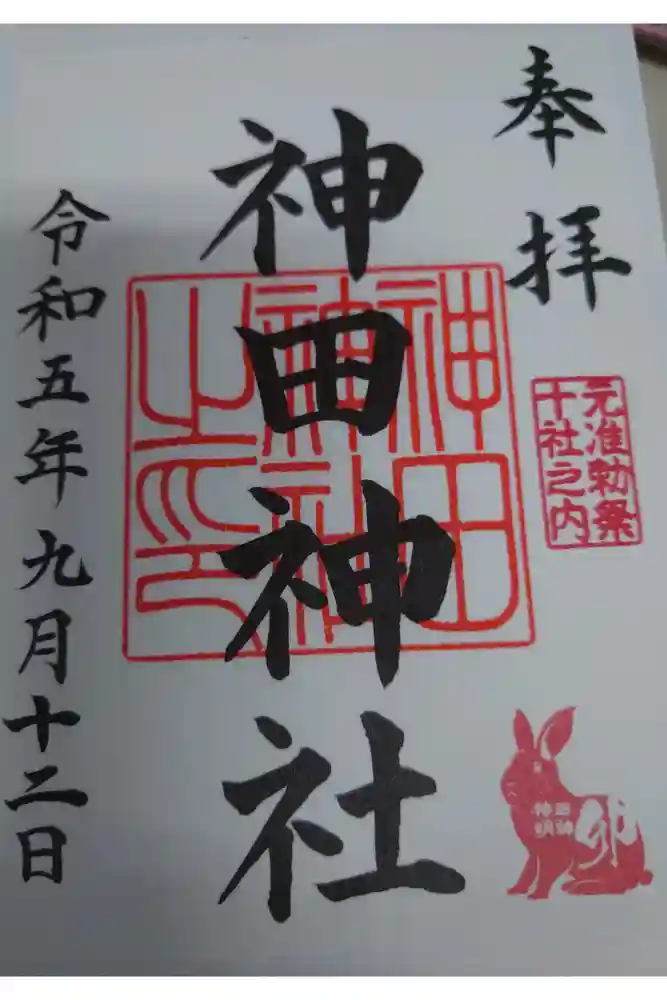 奉拝
元准勅祭
十社之内
神田神社
神田
神社
之印
神田
明神
卯
令和五年九月十二日